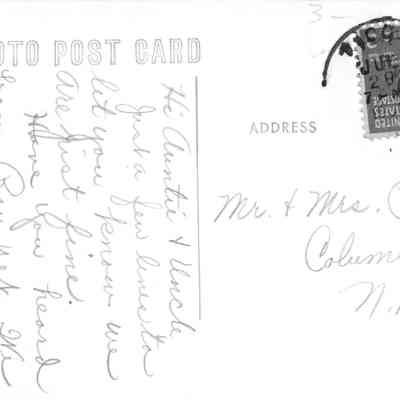 OTO POST CARD
ADDRESS
JUL
UNITED
STATES
POSTAGE
Mr. + Mrs.
Colum
N.
Hi Auntie & Uncle
Just a few lines to
let you know we
are just fine.
Have you heard
We